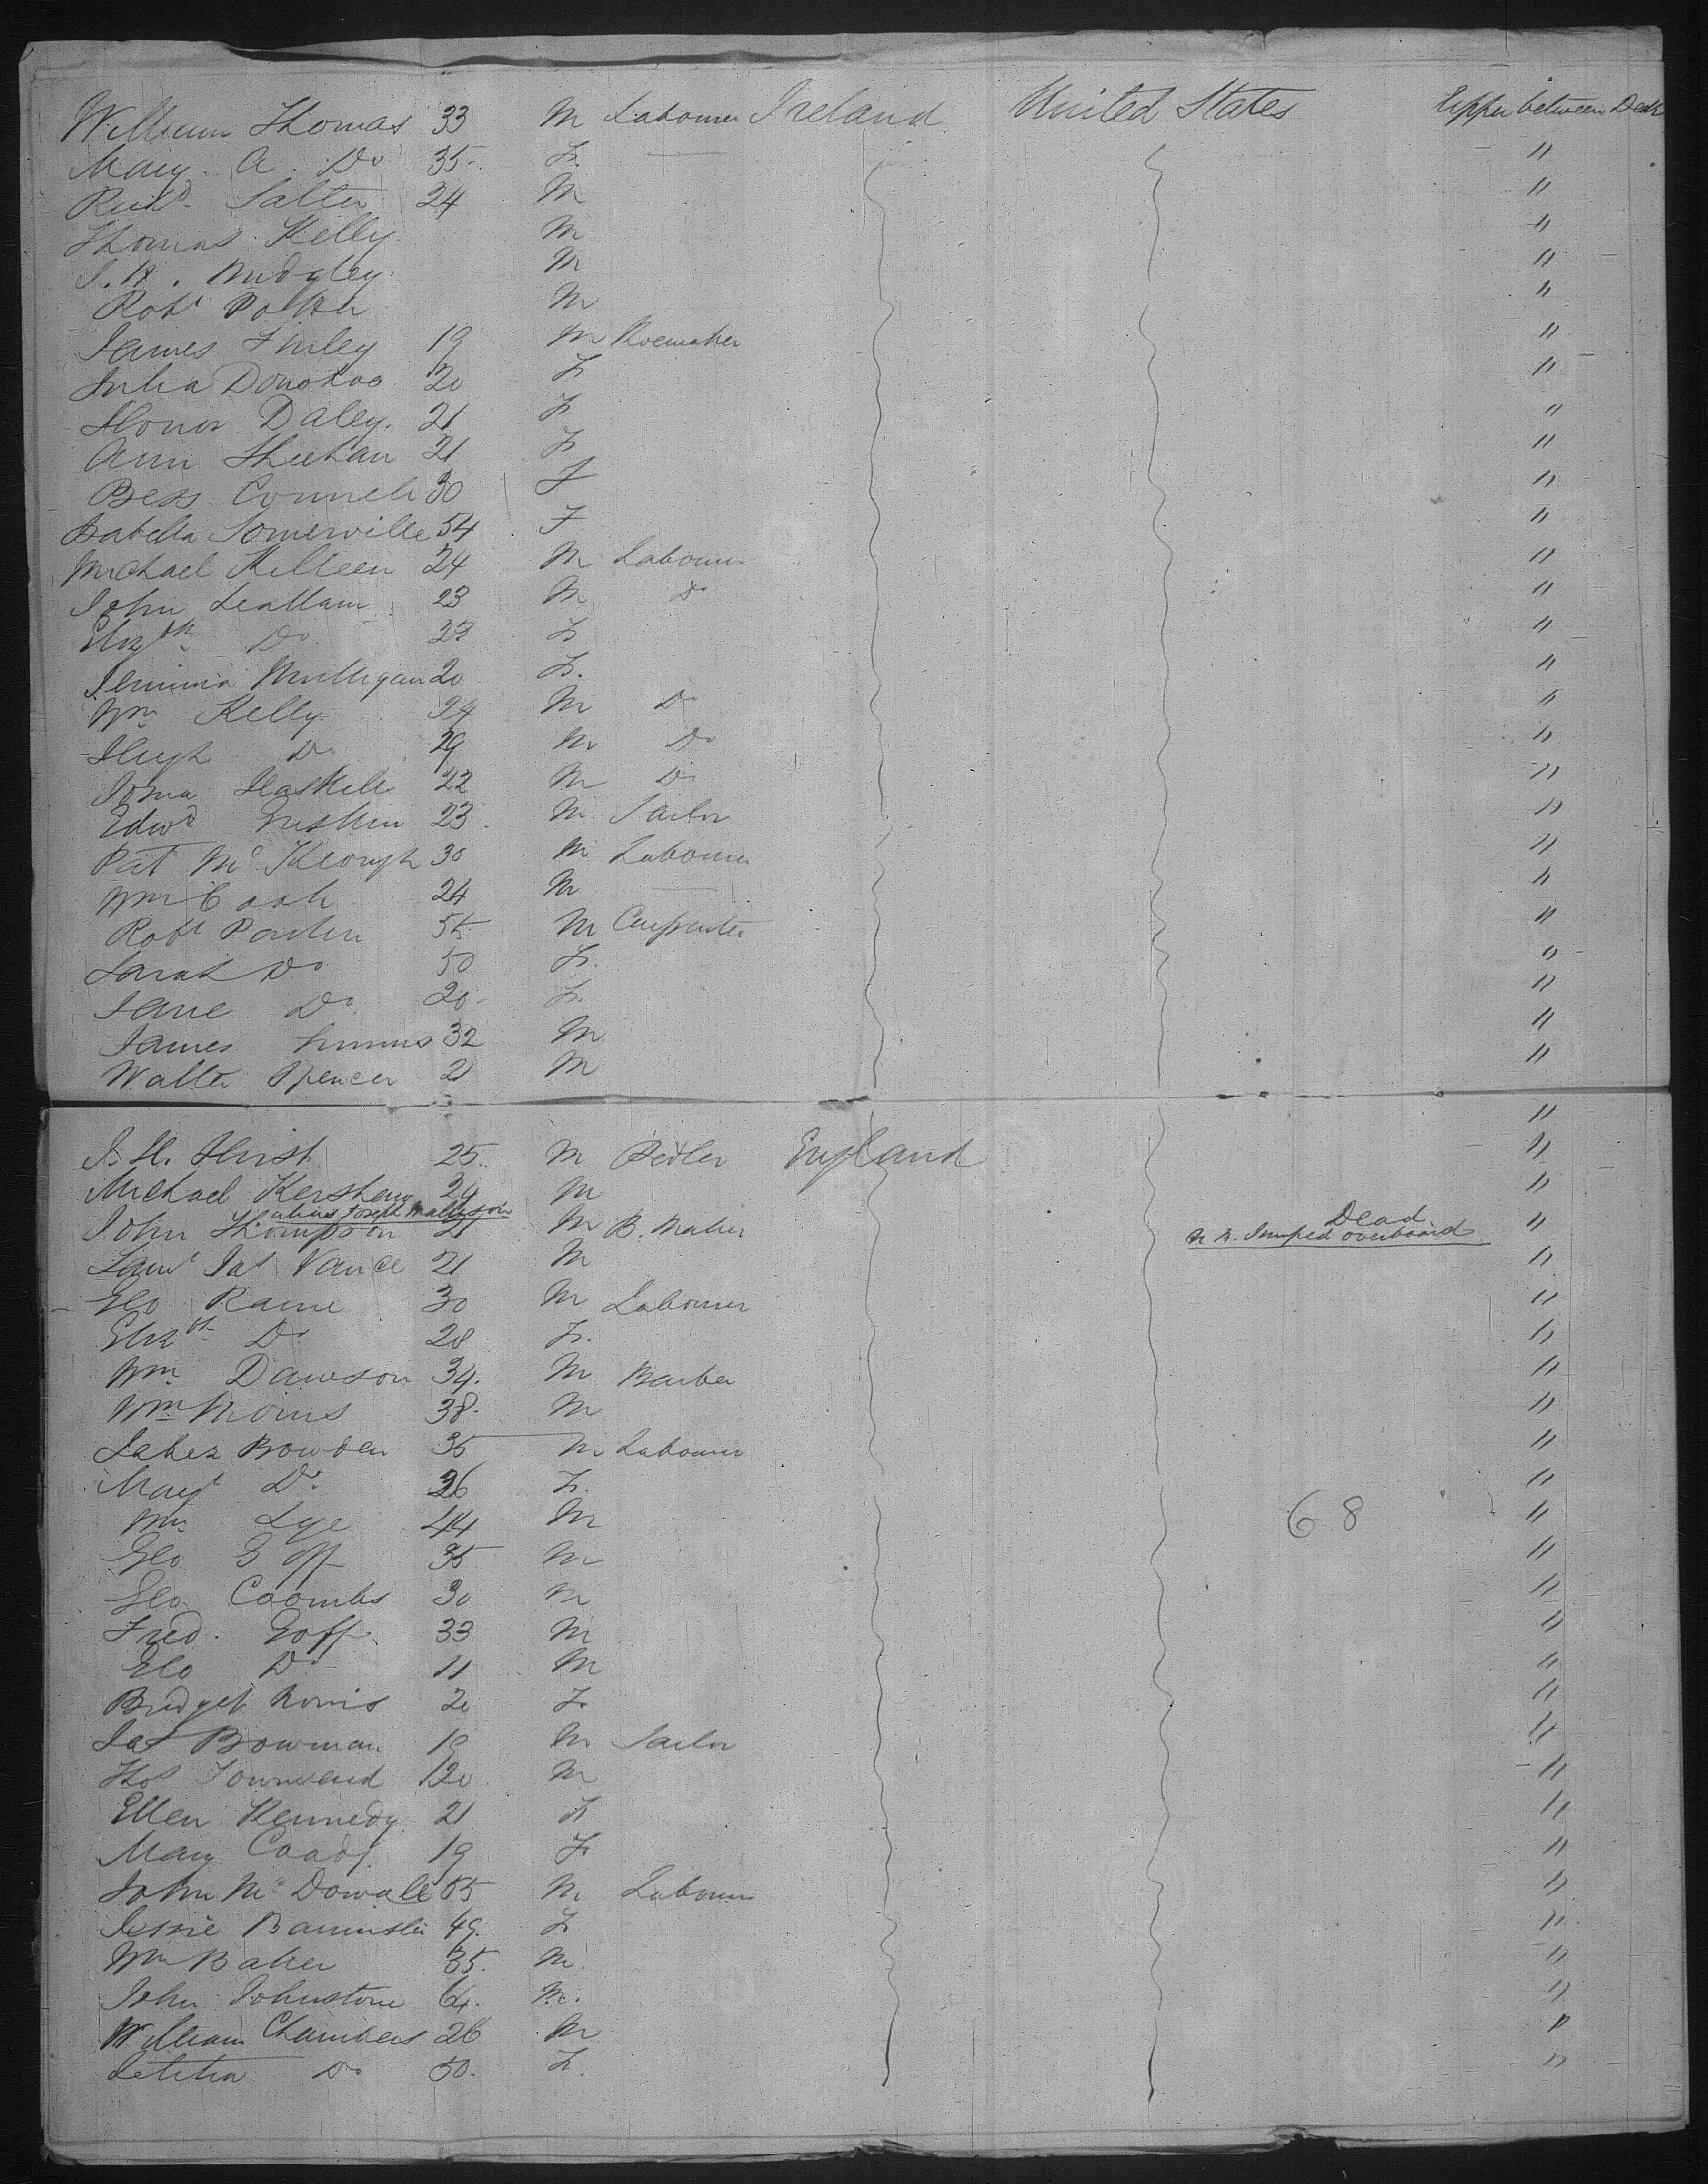 William Thomas 33 M Labourer Ireland United States Upper between Deck
Mary A. Do 35 F. — "
Richd. Salter 24 M "
Thomas Kelly M "
J. H. Midgley M "
Robt M "
James Finley 19 M "
Julia Donohoo 20 F "
Honor Daley. 21 F "
Ann Sheehan 21 F "
Bess Connell 30 F "
Isabella Somerville 54 F "
Michael Killeen 24 M Labourer "
John 23 M Do "
Elizth Do. 23 F "
Jemima Mulligan 20 F. "
Wm Kelly 24 M Do "
Hugh Do 29 M Do "
Haskell 22 M Do "
Edwd 23 M. Tailor "
Pat McKeough 30 M Labourer "
Wm Cook 24 M — "
Robt 55 M Carpenter "
Sarah Do 50 F. "
Jane Do. 20 F. "
James 32 M "
Walter Spencer 21 M "
"
J. H. Hirst 25. M Pedler England "
Michael Kershaw 24 M "
alias Joseph Mallyson
John Thompson 21 M B. Maker Dead "
N B. Jumped overboard
Saml Jas Vance 21 M "
Geo Raine 30 M Labourer "
Elizth Do 28 F. "
Wm Dawson 34. M Barber "
Wm Morris 38. M "
Jabez Bowden 35 M Labourer "
Margt Do. 36 F. "
Wm Lye 44 M 68 "
Geo Goff 35 M "
Geo. Coombs 30 M "
Fred. Goff. 33 M "
Geo Do 11 M "
Bridget Norris 20 F "
Jas Bowman 19 M Tailor "
Thos Townsend 20 M "
Ellen Kennedy. 21 F "
Mary Coady. 19 F "
John McDowall 55 M Labourer "
Jessie Bannister 49. F "
Wm Baker 35. M. "
John Johnstone 64. M. "
William Chambers 26 M "
Letitia Do 50. F. "